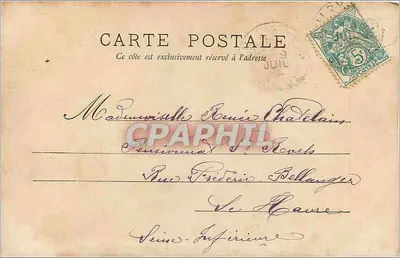 CARTE POSTALE
Ce côté est exclusivement réservé à l'adresse
9
JUIL
5
Mademoiselle Renée Chatelain
CPAPHIL
Pensionnat St Roch
Rue Frédéric Bellanger
Le Havre
Seine-Inférieure